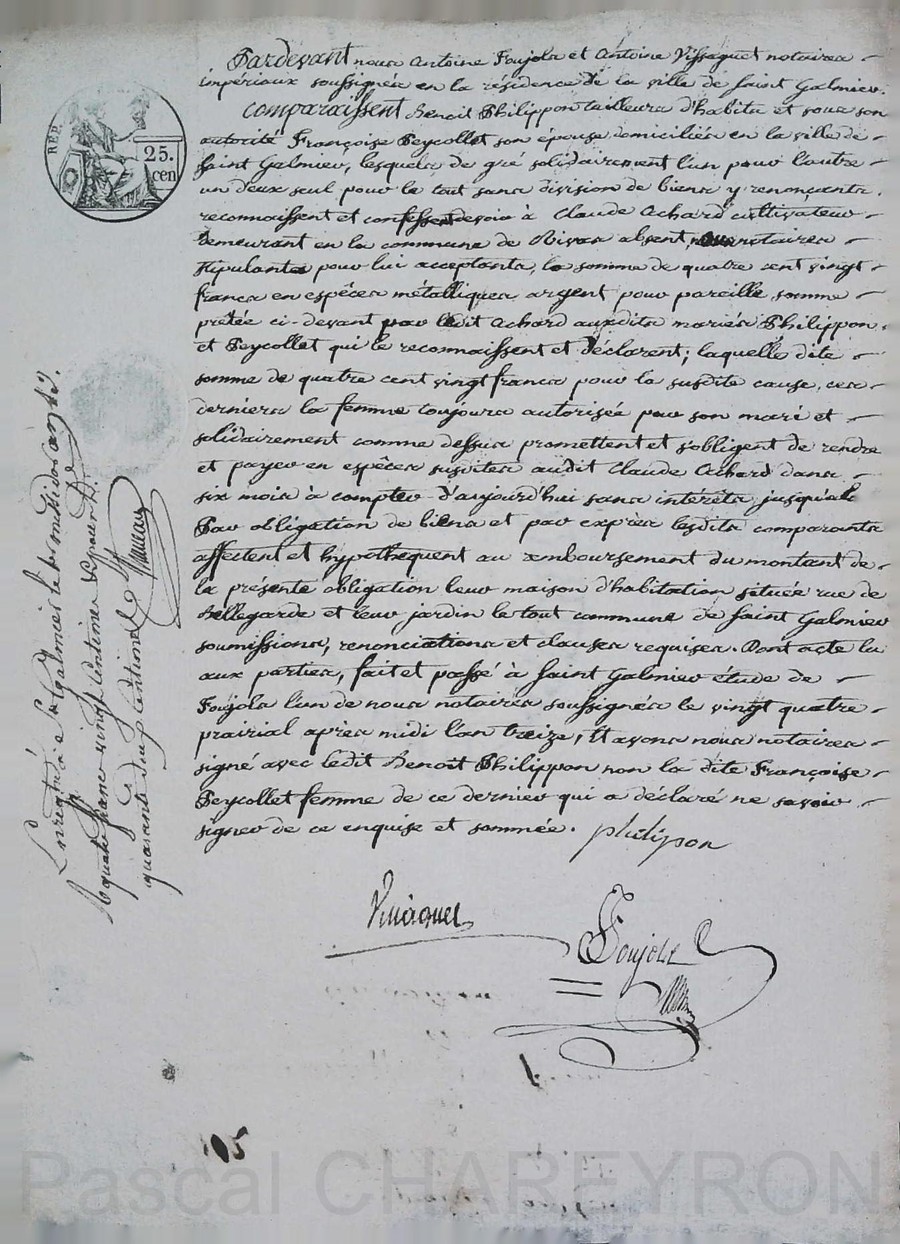 Pardevant nous Antoine Foujols et Antoine Vissaguet notaires
impériaux soussignés en la résidence de la ville de Saint Galmier.
Comparaissent Benoit Philippon tailleurs d'habits et sous son
autorité Françoise Peycollet son épouse domiciliés en la ville de
Saint Galmier, lesquels de gré solidairement l'un pour l'autre
un deux seul pour le tout sans division de biens y renonçants.
reconnaissent et confessent devoir à Claude Achard cultivateur
demeurant en la commune de Rivas absent, notaires
stipulants pour lui acceptants, la somme de quatre cent vingt
francs en espèces métalliques argent pour pareille somme
prêtée ci-devant par ledit Achard auxdits mariés Philippon.
et Peycollet qui le reconnaissent et déclarent; laquelle dite
somme de quatre cent vingt francs pour la susdite cause, ces
derniers la femme toujours autorisée par son mari et
solidairement comme dessus promettent et s'obligent de rendre
et payer en espèces susdites audit Claude Achard dans
six mois à compter d'aujourd'hui sans intérêts jusqu'alors
Par obligation de biens et par exprès lesdits comparants
affectent et hypothèquent au remboursement du montant de
la présente obligation leur maison d'habitation située rue de
Bellegarde et leur jardin le tout commune de Saint Galmier
soumissions, renonciations et clauses requises. Dont acte lu
aux parties, fait et passé à Saint Galmier étude de
Foujols l'un de nous notaires soussignés le vingt quatre
prairial après midi l'an treize, Et avons nous notaires
signé avec ledit Benoit Philippon non la dite Françoise
Peycollet femme de ce dernier qui a déclaré ne savoir
signer de ce enquise et sommée.
philippon
Vissaguet
Foujols
REP.
25.
cen
Enregistré à St Galmier le messidor an 13.
R quatre francs vingt centimes et pour D.e
quarante deux centimes
105
Pascal CHAREYRON